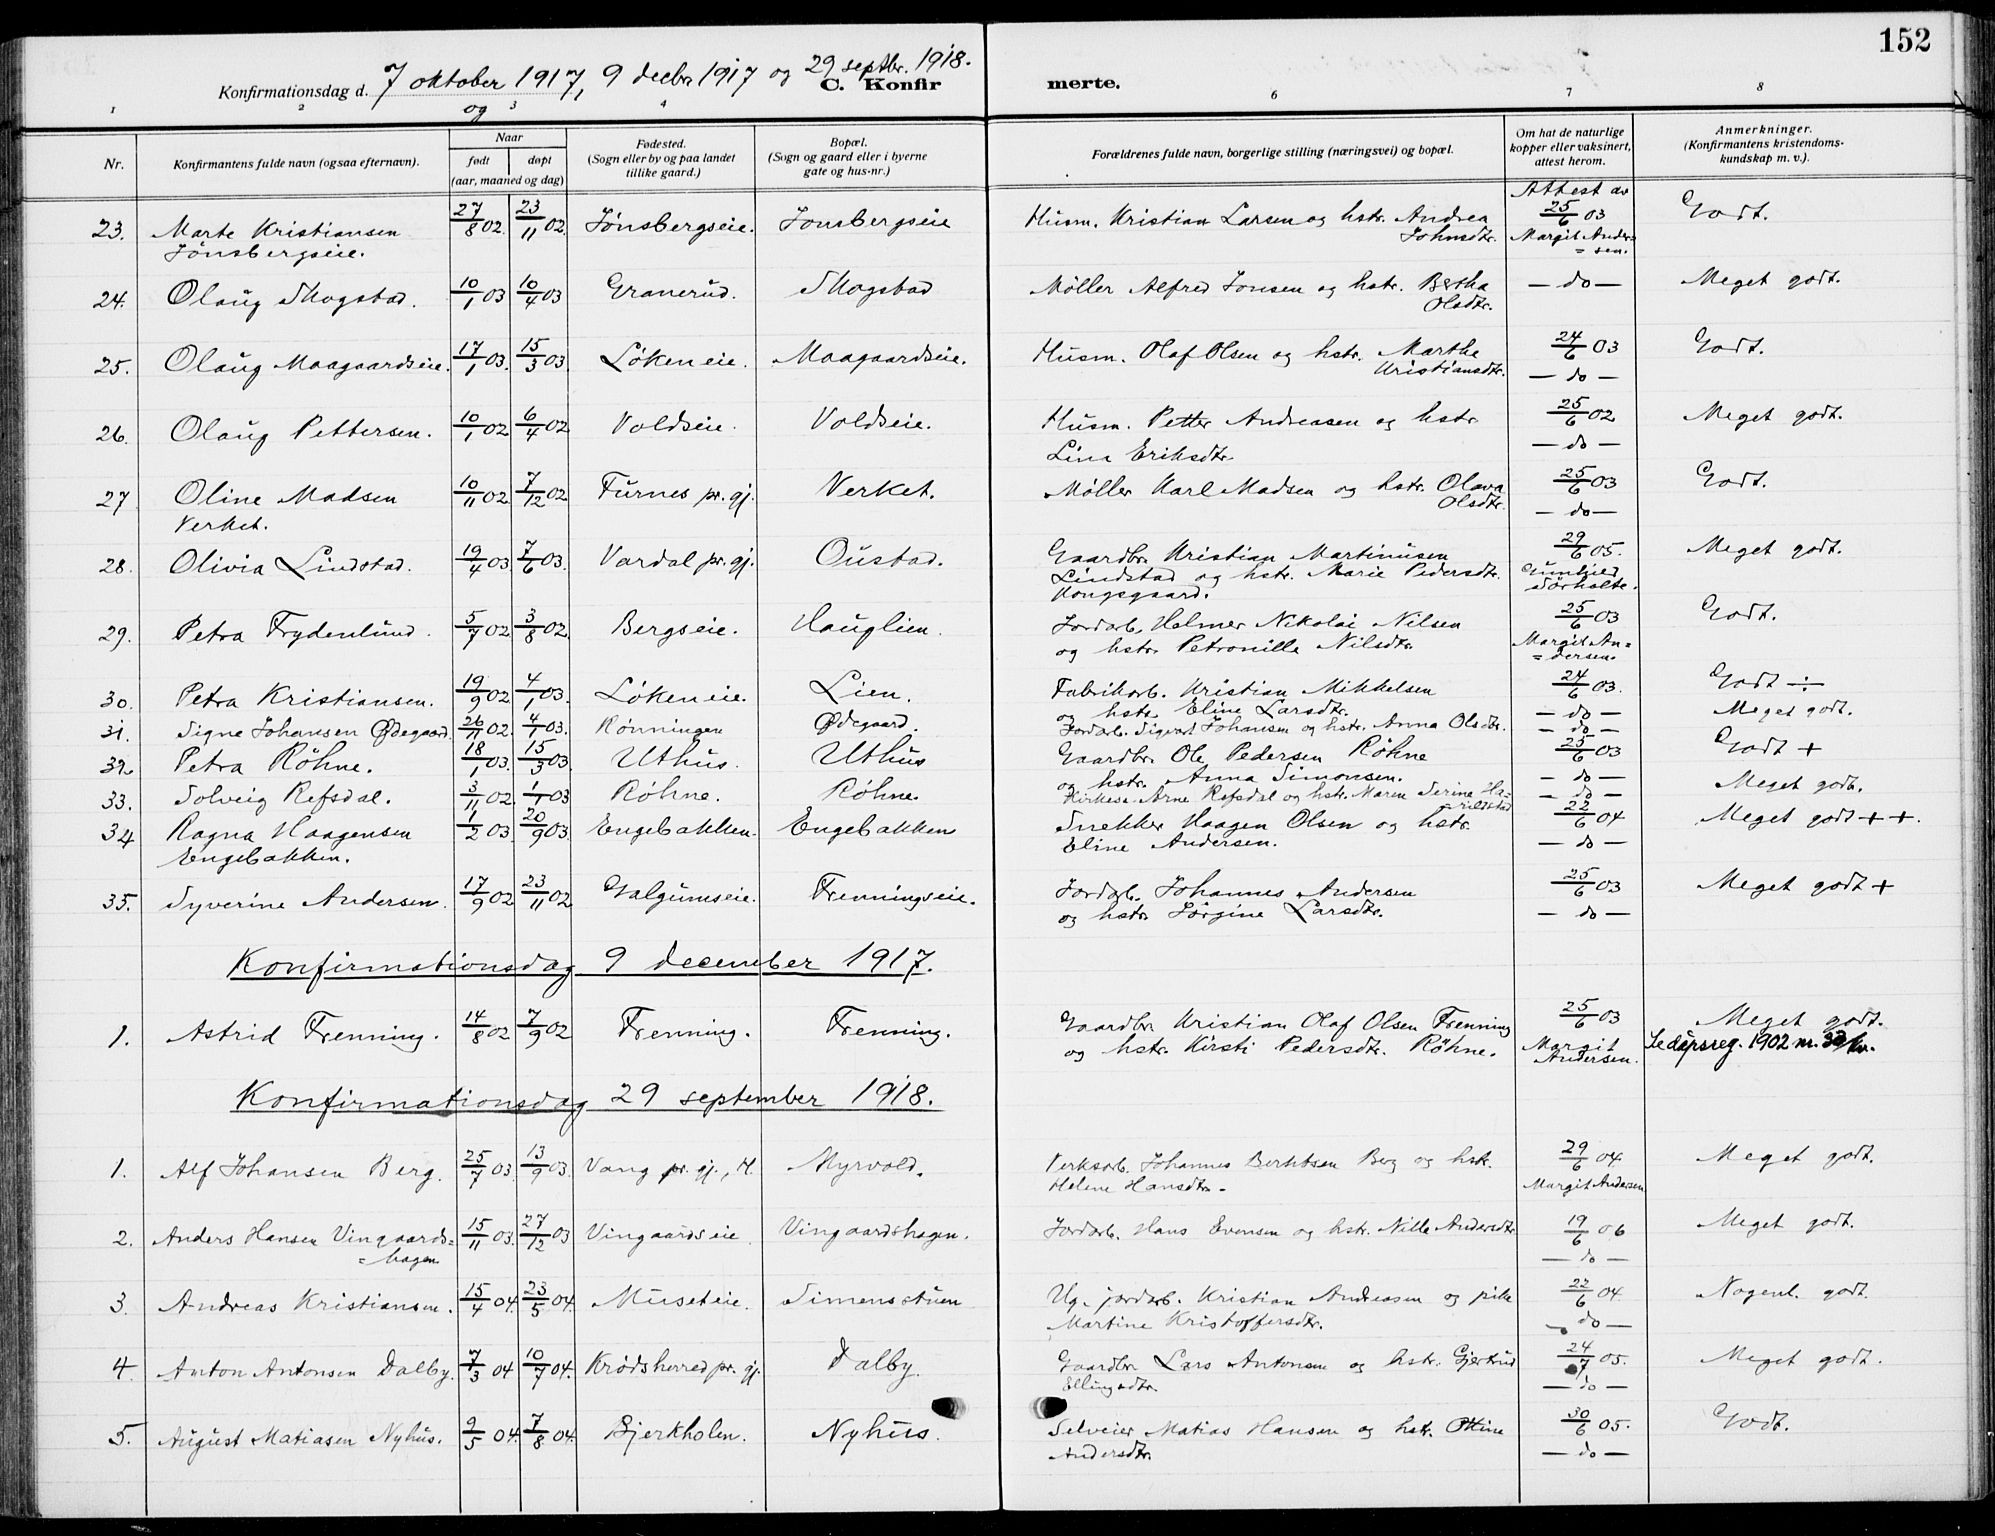 152
Konfirmationsdag d. 7 oktober 1917, 9 decbr 1917 og 29 septbr. 1918.
og
C. Konfirmerte.
1 2 3 4 6 7 8
Nr. Konfirmantens fulde navn (ogsaa efternavn). Naar født døpt (aar, maaned og dag) Fødested. (Sogn eller by og paa landet tillike gaard.) Bopæl. (Sogn og gaard eller i byerne gate og hus-nr.) Forældrenes fulde navn, borgerlige stilling (næringsvei) og bopæl. Om hat de naturlige kopper eller vaksinert, attest herom. Anmerkninger. (Konfirmantens kristendoms-kundskap m. v.).
23. Marte Kristiansen 27/8 02. 23/11 02. Jønsbergseie. Jønsbergseie Husm. Kristian Larsen og hstr. Andrea Attest av 25/6 03 Godt.
Jønsbergseie. Johnsdtr. Margit Ander=
=sen.
24. Olaug Skogstad. 10/1 03 10/4 03 Granerud. Skogstad Møller Alfred Jonsen og hstr. Bertha — do — Meget godt.
Olsdtr.
25. Olaug Maagaardseie. 17/1 03. 15/3 03. Løkeneie. Maagaardseie. Husm. Olaf Olsen og hstr. Marthe 24/6 03 Godt.
Kristiansdtr. — do —
26. Olaug Pettersen. 10/1 02 6/4 02 Voldseie. Voldseie. Husm. Petter Andreasen og hstr 25/6 02 Meget godt.
Lina Eriksdtr. — do —
27 Oline Madsen 10/11 02 7/12 02 Furnes pr. gj. Verket. Møller Karl Madsen og hstr. Olava 25/6 03 Godt.
Verket. Olsdtr. — do —
28. Olivia Lindstad. 19/4 03 7/6 03. Vardal pr. gj. Oustad. Gaardbr. Kristian Martinusen 29/6 05. Meget godt.
Lindstad og hstr. Marie Pedersdtr. Gunhild
Kongsgaard. Sörholte.
29. Petra Frydenlund. 5/7 02 3/8 02. Bergseie. Hauglien. Jordarb. Helmer Nikolai Nilsen 25/6 03 Godt.
og hstr. Petronille Nilsdtr. Margit An=
=dersen.
30. Petra Kristiansen. 19/9 02 4/1 03. Løkeneie. Lien. Fabrikarb. Kristian Mikkelsen 24/6 03. Godt ÷
og hstr. Eline Larsdtr. — do —
31. Signe Johansen Ødegaard. 26/11 02. 4/1 03. Rønningen Ødegaard. Jordarb. Sigvart Johansen og hstr. Anna Olsdtr. — do — Meget godt.
32. Petra Röhne. 18/1 03. 15/3 03. Uthus. Uthus Gaardbr. Ole Pedersen Röhne 25/6 03 Godt +
og hstr. Anna Simonsen. — do —
33. Solveig Refsdal. 3/11 02. 1/1 03 Röhne. Röhne. Kirkesa. Arne Refsdal og hstr. Maren Serina Ha- — do — Meget godt.
34 Ragna Haagensen 1/2 03 20/9 03. Engebakken. Engebakken Snekker Haagen Olsen og hstr. 22/6 04 Meget godt + +.
Engebakken. Eline Andersen. — do —
35. Syverine Andersen. 17/9 02 23/11 02 Galgumseie. Frenningseie. Jordarb. Johannes Andersen 25/6 03 Meget godt +
og hstr Jörgine Larsdtr. — do —
Konfirmationsdag 9 december 1917.
1. Astrid Frenning. 14/8 02 7/9 02 Frenning. Frenning. Gaardbr Kristian Olaf Olsen Frenning 25/6 03 Meget godt.
og hstr. Kirsti Pedersdtr. Röhne. Margit Andersen. Se dåpsreg. 1902 nr.
Konfirmationsdag 29 september 1918.
1. Alf Johansen Berg. 25/7 03. 13/9 03. Vang pr. gj., H. Myrvold. Verksarb. Johannes Berntsen Berg og hstr. 29/6 04 Meget godt.
Helene Hansdtr. Margit Andersen
2. Anders Hansen Vingaards= 15/11 03. 27/12 03 Vingaardseie Vingaardshagen. Jordarb. Hans Evensen og hstr. Nille Andersdtr 19/6 06 Meget godt.
=hagen — do —
3. Andreas Kristiansen. 15/4 04. 23/5 04. Museteie. Simensstuen Ug. jordarb. Kristian Andreasen og pike 22/6 04. Nogenl. godt.
Martine Kristoffersdtr. — do —
4. Anton Antonsen Dalby. 7/3 04 10/7 04. Krödsherred pr. gj. Dalby. Gaardbr Lars Antonsen og hstr. Gjertrud 24/7 05. Meget godt.
Ellingsdtr. — do —
5. August Matiasen Nyhus. 9/5 04. 7/8 04. Bjerkholen. Nyhus. Selveier Matias Hansen og hstr. Ottine 30/6 05. Godt.
Andersdtr. — do —